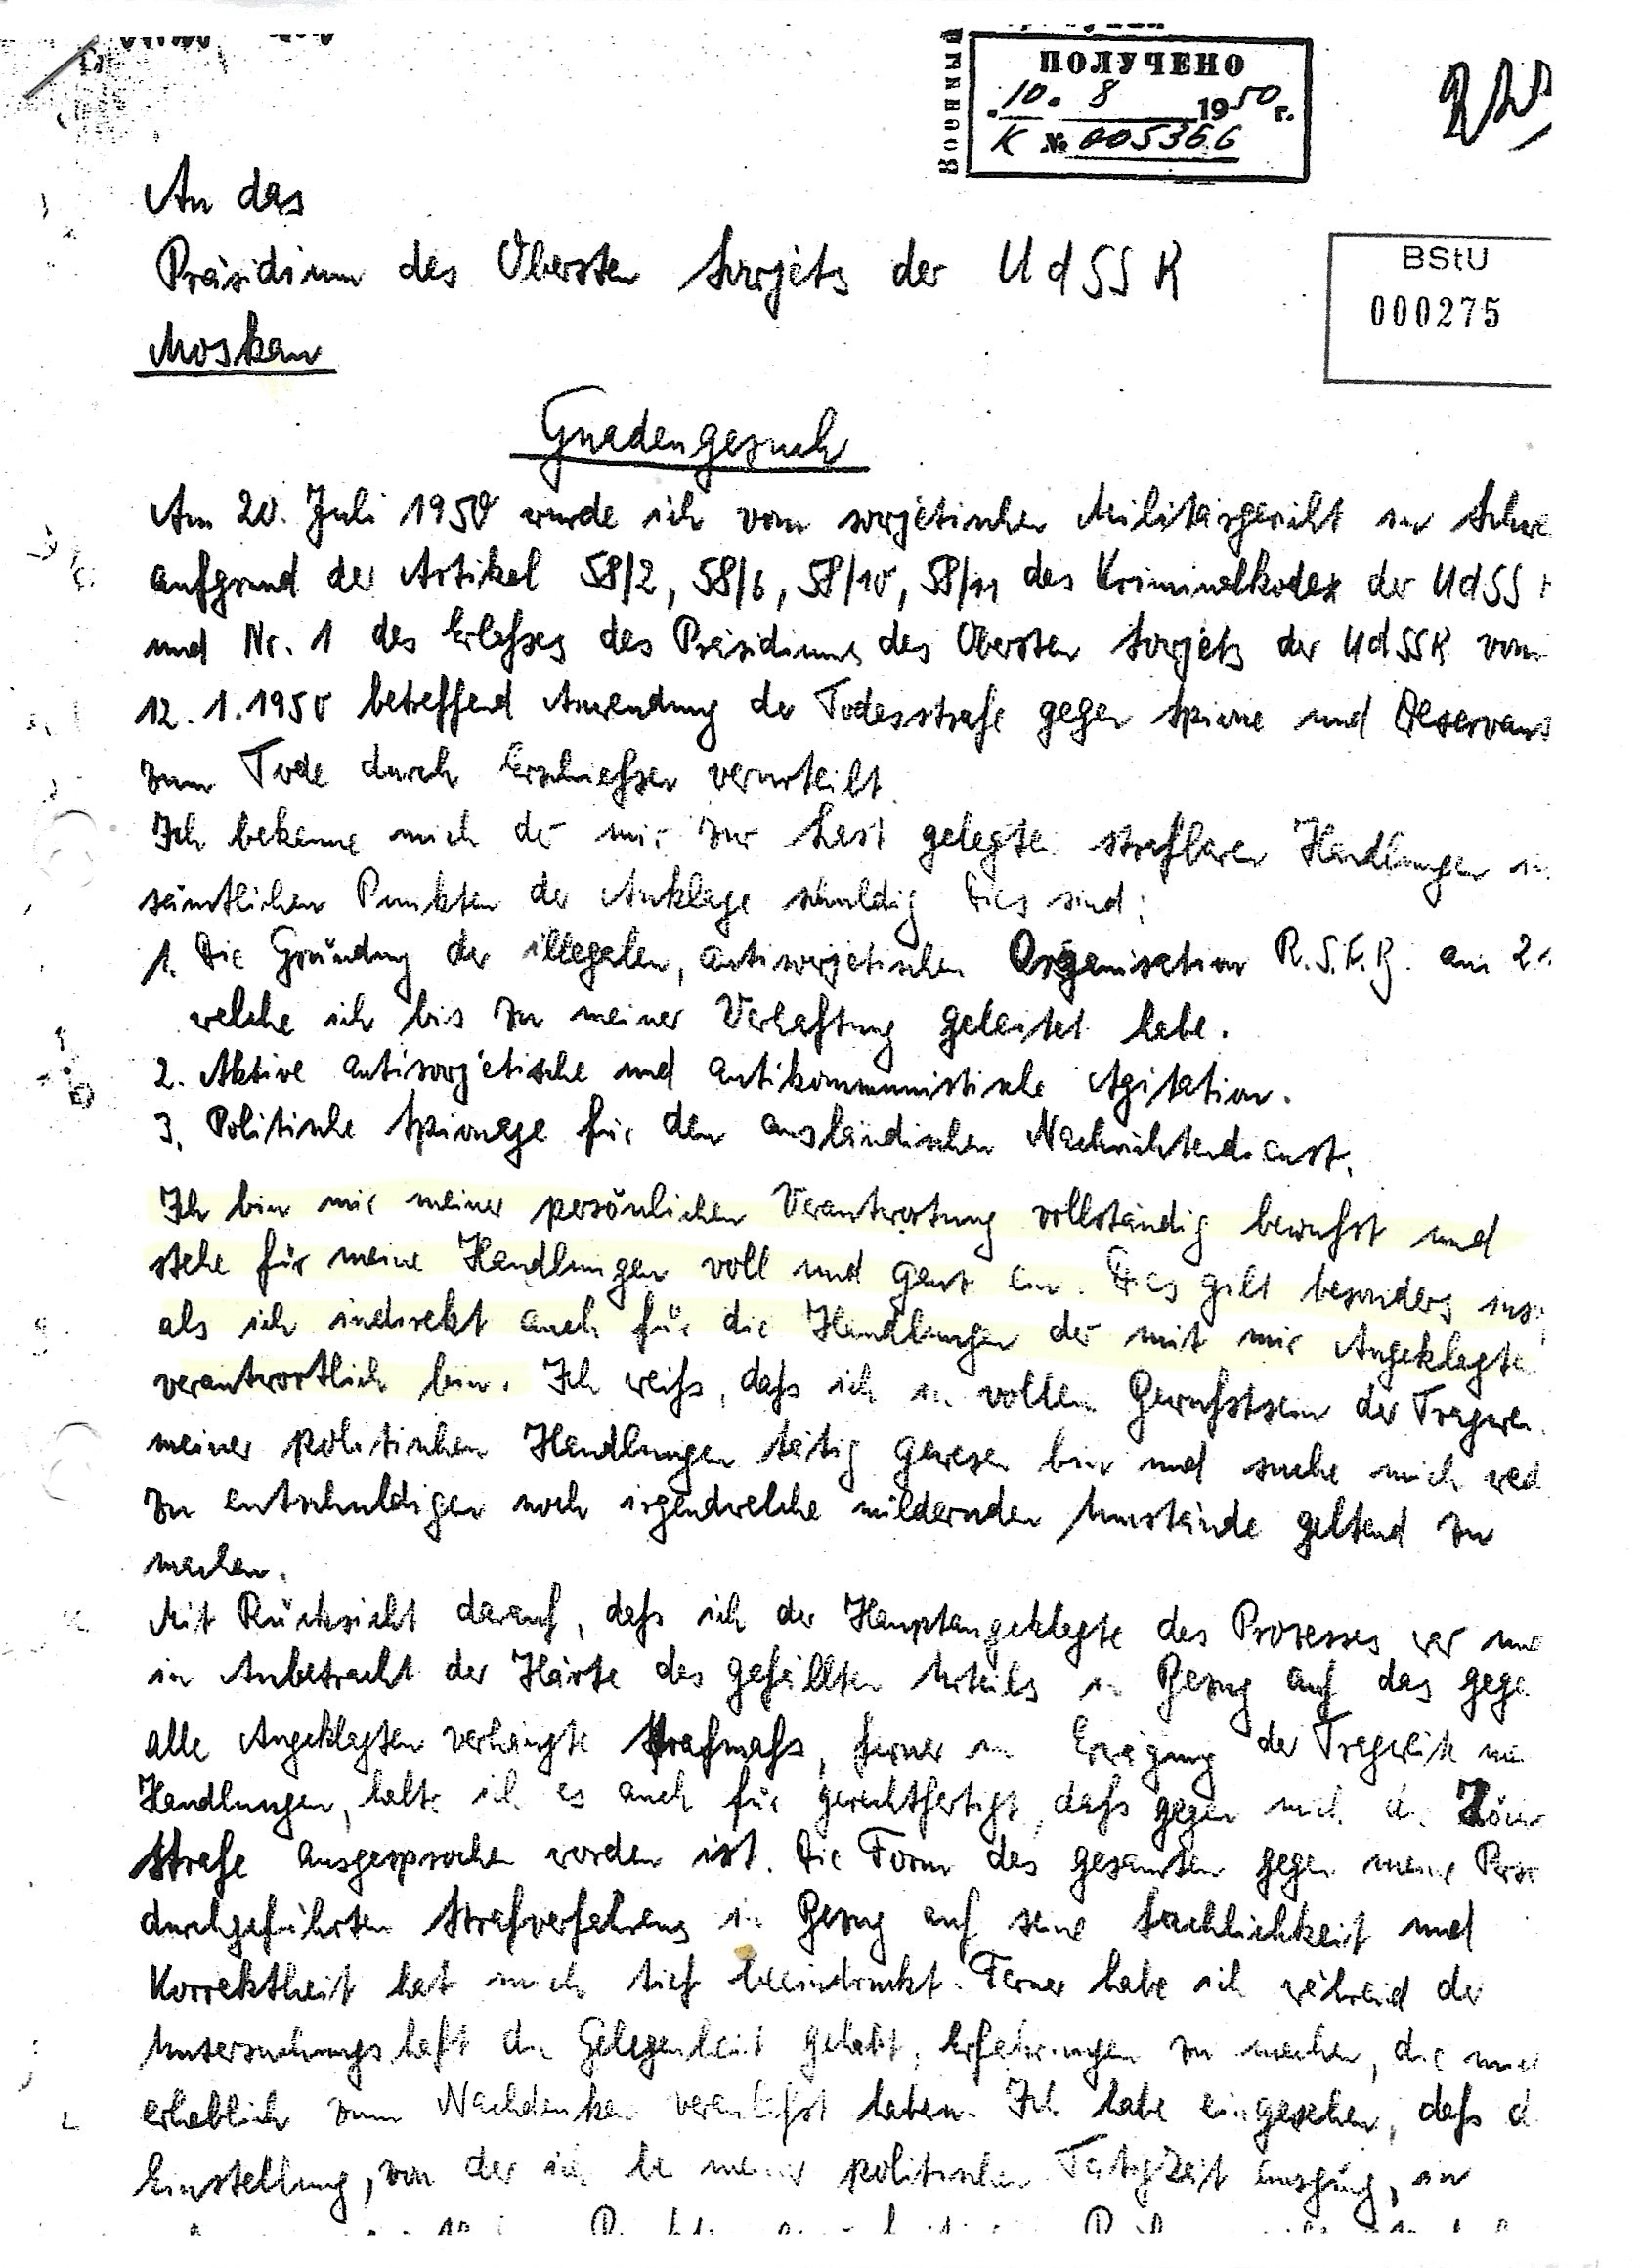 ПОЛУЧЕНО
10. 8 1950 г.
К № 005366
An das
Präsidium des Obersten Sowjets der UdSSR
BStU
000275
Moskau
Gnadengesuch
Am 20. Juli 1950 wurde ich vom sowjetischen Militärgericht in Schwe
aufgrund der Artikel 58/2, 58/6, 58/10, 58/11 des Kriminalkodex der UdSS
und Nr. 1 des Erlaßes des Präsidiums des Obersten Sowjets der UdSSR vom
12.1.1950 betreffend Anwendung der Todesstrafe gegen Spione und
zum Tode durch Erschießen verurteilt.
Ich bekenne mich der mir zur Last gelegten strafbaren Handlungen in
sämtlichen Punkten der Anklage schuldig. Dies sind:
1. Die Gründung der illegalen, antisowjetischen Organisation R.S.F.R. am
welche ich bis zu meiner Verhaftung geleitet habe.
2. Aktive antisowjetische und antikommunistische Agitation.
3. Politische Spionage für den ausländischen Nachrichtendienst.
Ich bin mir meiner persönlichen Verantwortung vollständig bewußt und
stehe für meine Handlungen voll und ganz ein. Dies gilt besonders inso
als ich indirekt auch für die Handlungen der mit mir Angeklagten
verantwortlich bin. Ich weiß, daß ich in vollem Bewußtsein der Tragwei
meiner politischen Handlungen tätig gewesen bin und suche mich wed
zu entschuldigen noch irgendwelche mildernden Umstände geltend zu
machen.
Mit Rücksicht darauf, daß ich der Hauptangeklagte des Prozesses war und
in Anbetracht der Härte des gefällten Urteils in Bezug auf das gege
alle Angeklagten verhängte Strafmaß, ferner in Erwägung der Tragweite mei
Handlungen, halte ich es auch für gerechtfertigt, daß gegen mich die
Strafe ausgesprochen worden ist. Die Form des gesamten gegen meine Perso
durchgeführten Strafverfahrens in Bezug auf seine Sachlichkeit und
Korrektheit hat mich tief beeindruckt. Ferner habe ich während der
Untersuchungshaft die Gelegenheit gehabt, Erfahrungen zu machen, die mich
erheblich zum Nachdenken veranlaßt haben. Ich habe eingesehen, daß d
Einstellung, von der ich bei meiner politischen Tätigkeit ausging, in